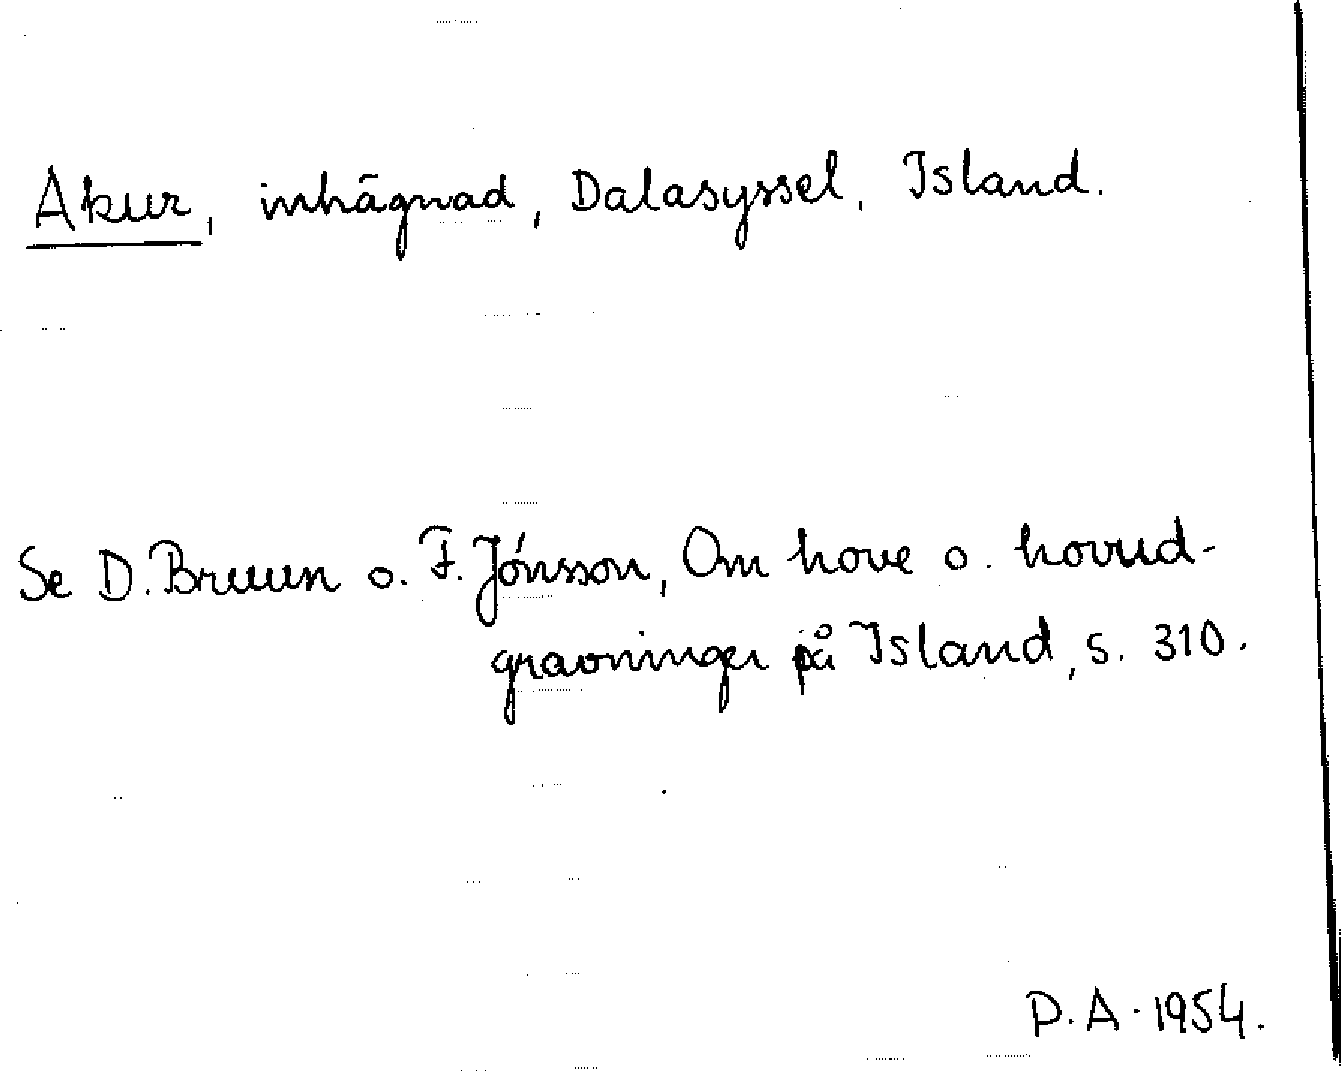 Akur, inhägnad, Dalasyssel, Island.
Se D. Bruun o. F. Jónsson, Om hove o. hovud-
gravninger på Island, s. 310.
P. A. 1954.